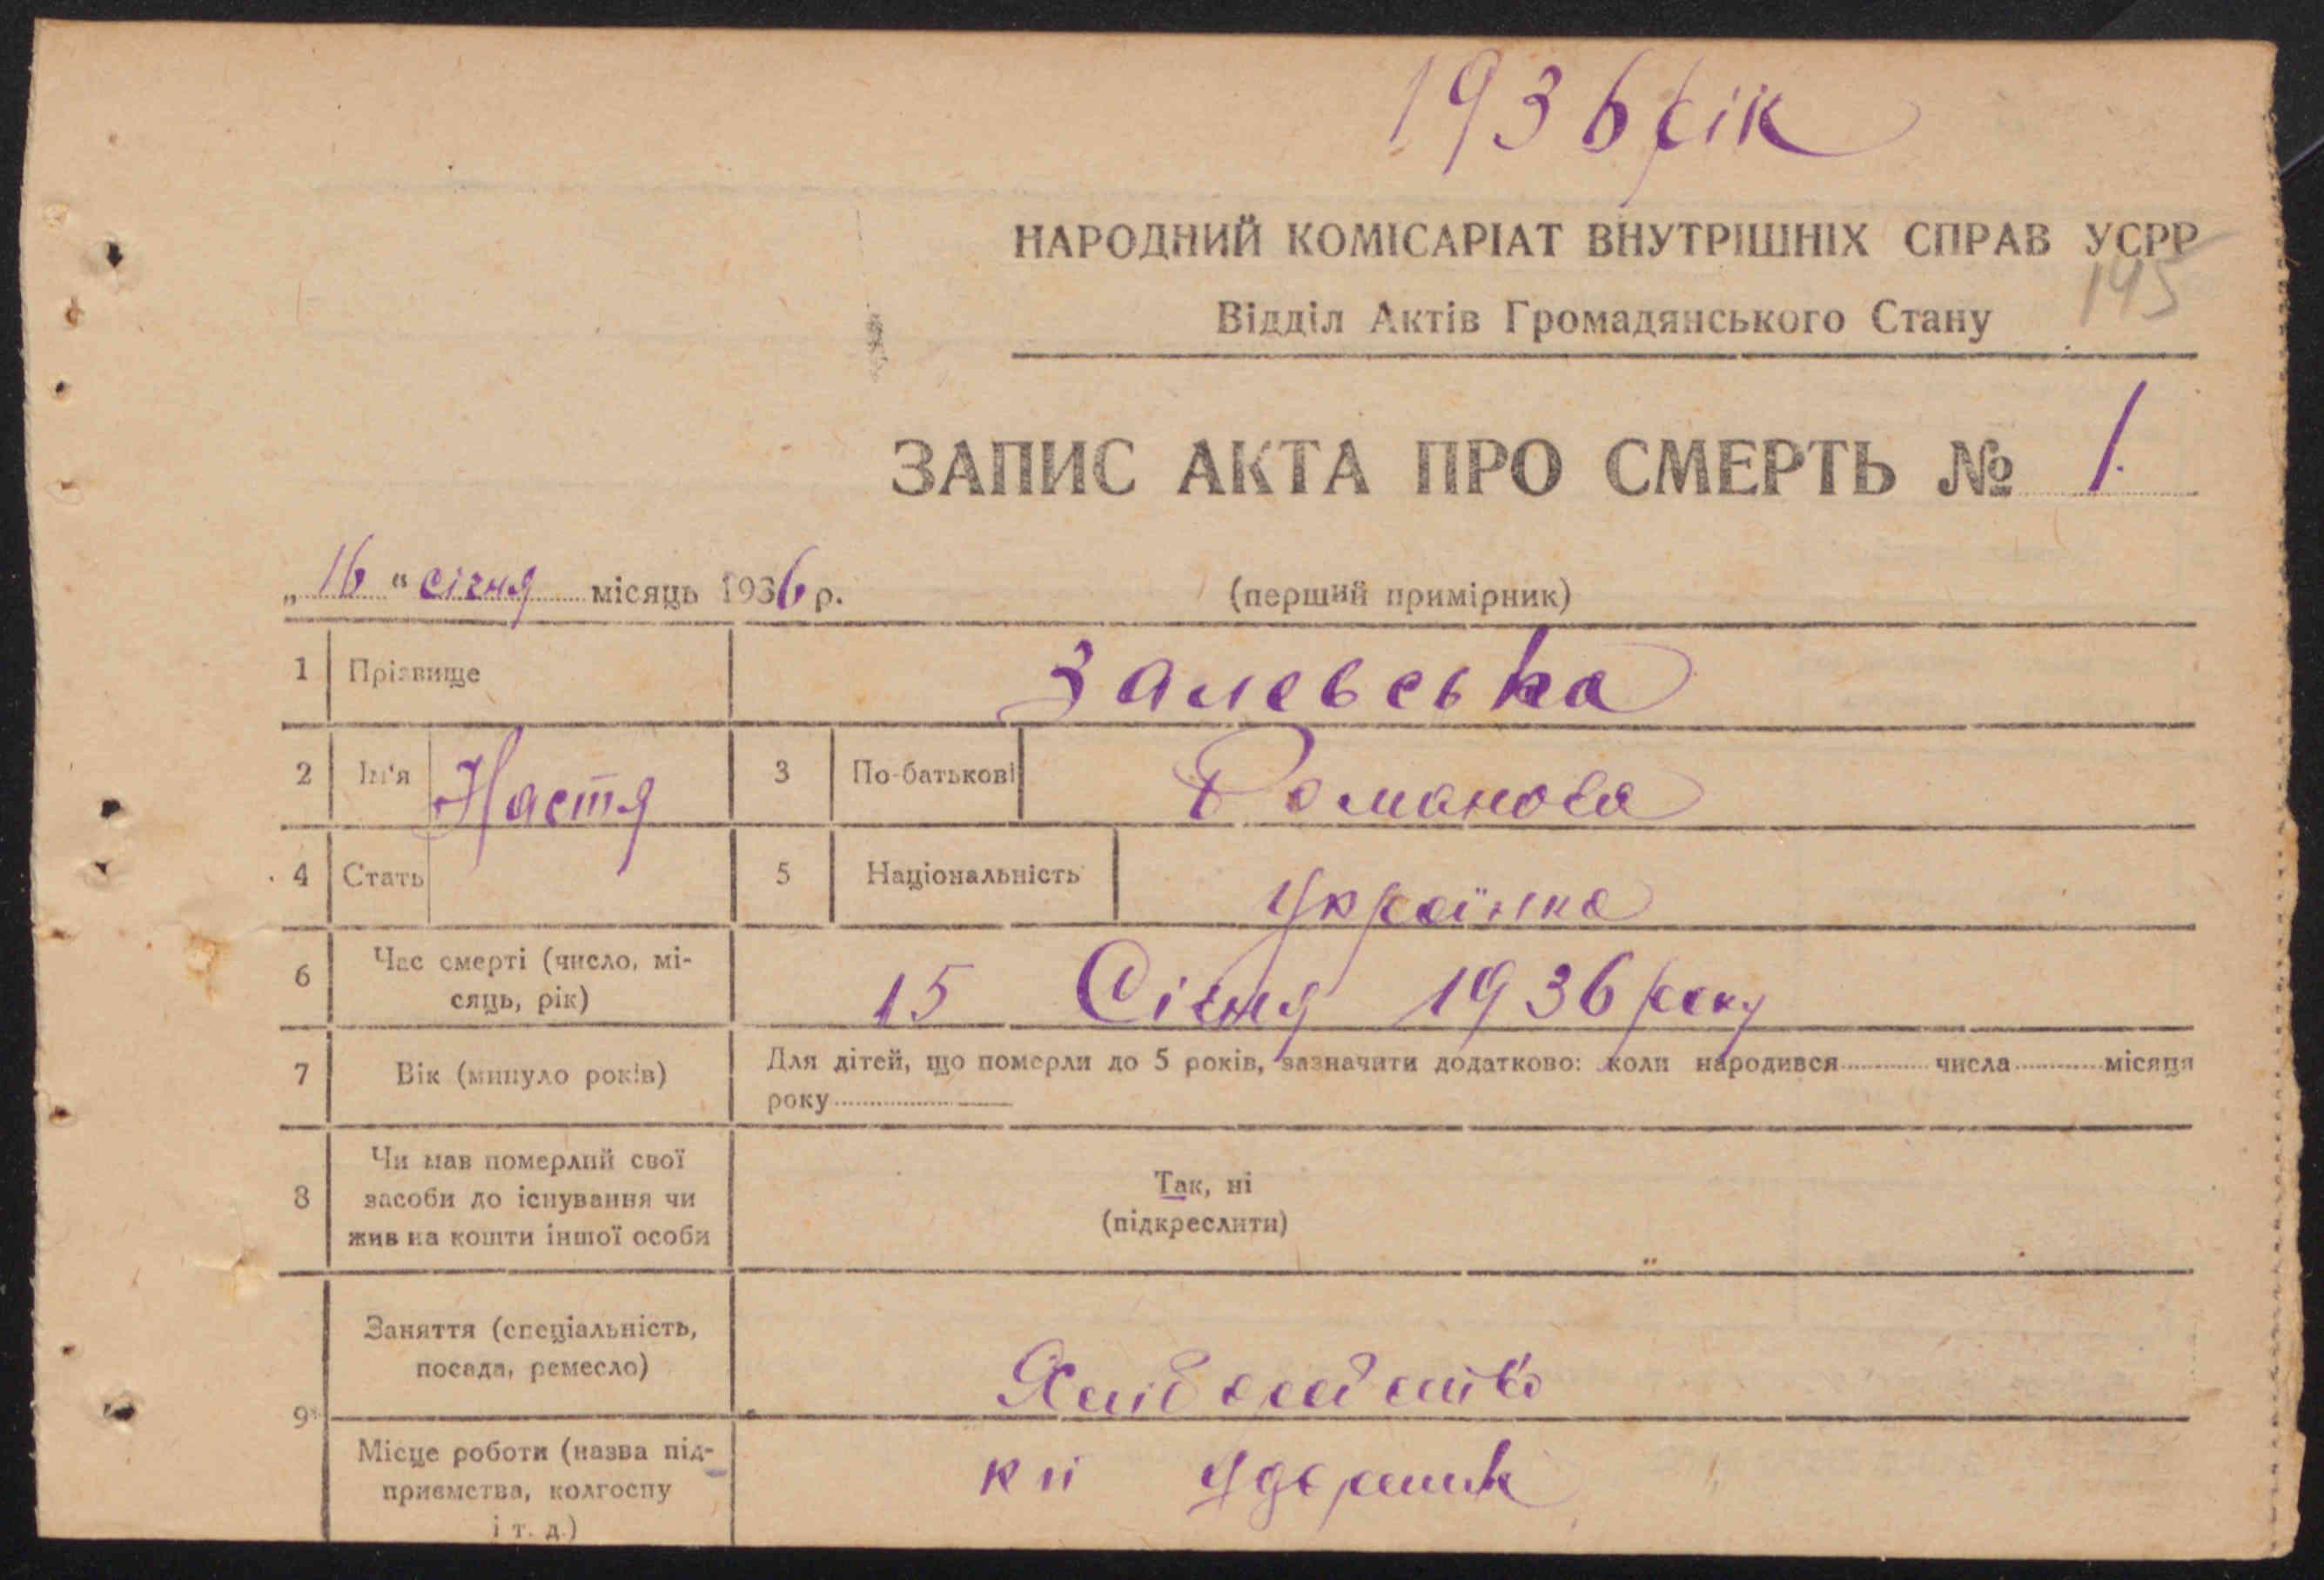 1936 рік
НАРОДНИЙ КОМІСАРІАТ ВНУТРІШНІХ СПРАВ УСРР
145
Відділ Актів Громадянського Стану
ЗАПИС АКТА ПРО СМЕРТЬ № 1.
„16“ січня місяць 1936 р. (перший примірник)
1 Прізвище Залевська
2 Ім'я Настя 3 По-батькові Романова
4 Стать 5 Національність Українка
6 Час смерті (число, мі-
сяць, рік) 15 Січня 1936 року
7 Вік (минуло років) Для дітей, що померли до 5 років, зазначити додатково: коли народився числа місяця
року
8 Чи мав померлий свої
засоби до існування чи
жив на кошти іншої особи
Так, ні
(підкреслити)
9 Заняття (спеціальність,
посада, ремесло) Хліборобство
Місце роботи (назва під-
приємства, колгоспу
і т. д.) кп Ударник